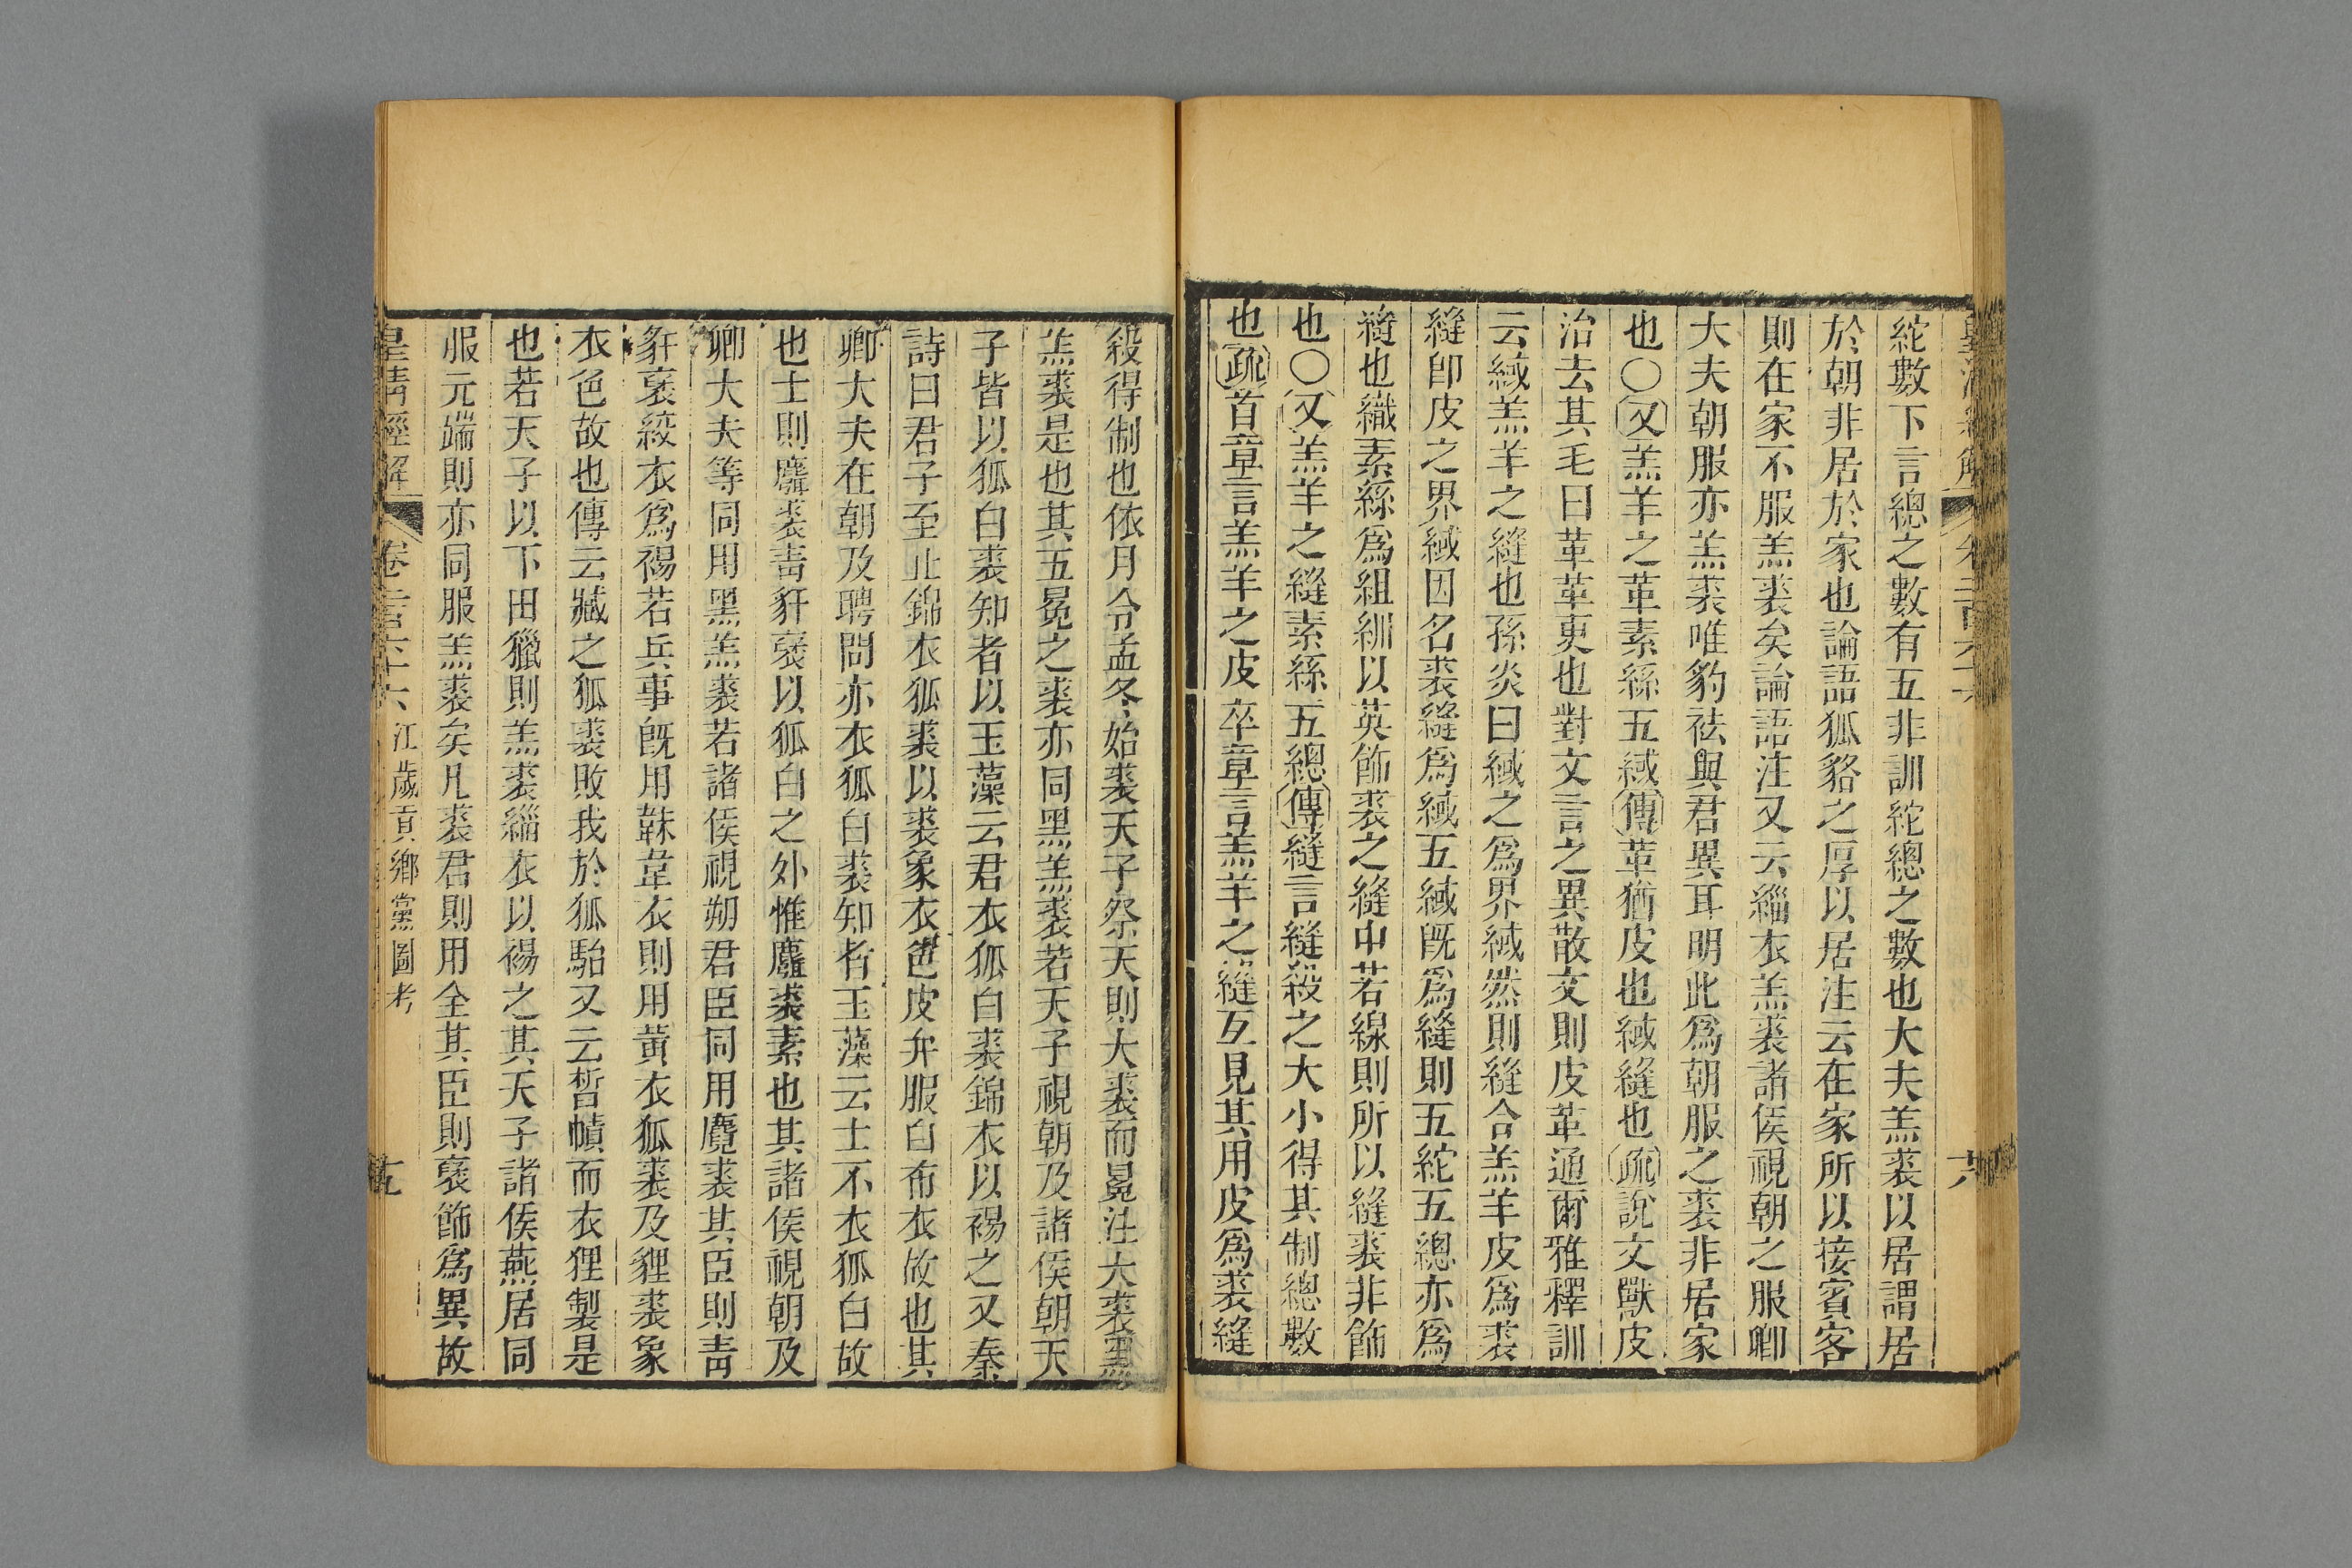 紽數下言總之數有五非訓紽總之數也大夫羔裘以居謂居
於朝非居於家也論語狐貉之厚以居注云在家所以接賓客
則在家不服羔裘矣論語注又云緇衣羔裘諸侯視朝之服卿
大夫朝服亦羔裘唯豹袪與君異耳明此爲朝服之裘非居家
也〇又羔羊之革素絲五緎傳革猶皮也緎縫也疏說文獸皮
治去其毛曰革革更也對文言之異散文則皮革通爾雅釋訓
云緎羔羊之縫也孫炎曰緎之爲界緎然則縫合羔羊皮爲裘
縫卽皮之界緎因名裘縫爲緎五緎旣爲縫則五紽五總亦爲
縫也織素絲爲組紃以英飾裘之縫中若線則所以縫裘非飾
也〇又羔羊之縫素絲五總傳縫言縫殺之大小得其制總數
也疏首章言羔羊之皮卒章言羔羊之縫互見其用皮爲裘縫
殺得制也依月令孟冬始裘天子祭天則大裘而冕注大裘黑
羔裘是也其五冕之裘亦同黑羔裘若天子視朝及諸侯朝天
子皆以狐白裘知者以玉藻云君衣狐白裘錦衣以裼之又秦
詩曰君子至止錦衣狐裘以裘象衣色皮弁服白布衣故也其
卿大夫在朝及聘問亦衣狐白裘知者玉藻云士不衣狐白故
也士則麛裘靑豻褎以狐白之外惟麛裘素也其諸侯視朝及
卿大夫等同用黑羔裘若諸侯視朔君臣同用麑裘其臣則靑
豻褎絞衣爲裼若兵事旣用韎韋衣則用黃衣狐裘及貍裘象
衣色故也傳云臧之狐裘敗我於狐駘又云晳幘而衣狸製是
也若天子以下田獵則羔裘緇衣以裼之其天子諸侯燕居同
服元端則亦同服羔裘矣凡裘君則用全其臣則褎飾爲異故
皇清經解 卷二百六十六 江歲貢鄉黨圖考